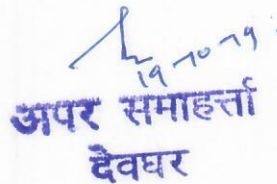 19-10-19
अपर समाहर्त्ता
देवघर